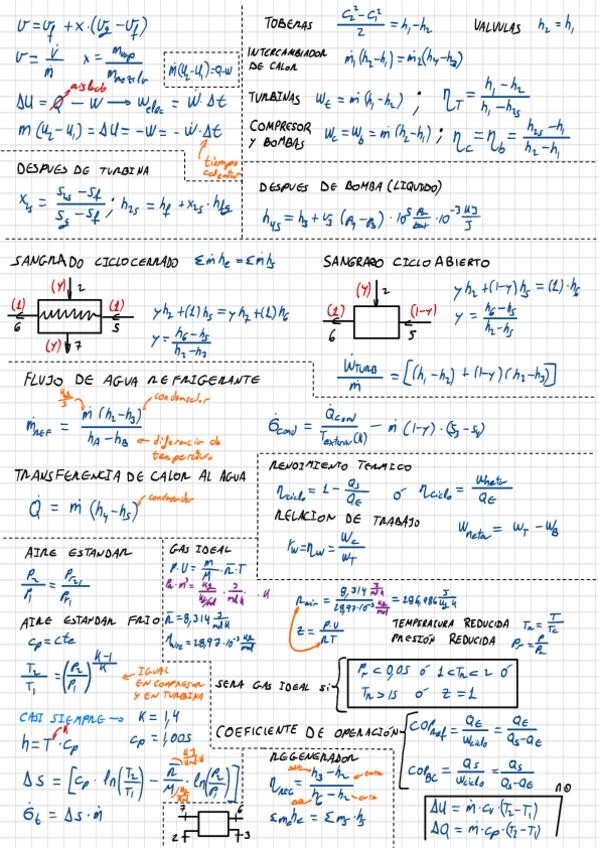 v = vf + x·(vg - vf)
v = V̇/ṁ   x = m vap / m mezcla
m(u2-u1) = Q-W
aislado
ΔU = Q - W → Welec = Ẇ·Δt
m(u2-u1) = ΔU = -W = -Ẇ·Δt
tiempo calentar
TOBERAS   (C2² - C1²)/2 = h1-h2   VALVULAS   h2 = h1
INTERCAMBIADOR DE CALOR   ṁ1(h2-h1) = ṁ2(h4-h3)
TURBINAS   Wt = ṁ(h1-h2) ; ηT = (h1-h2)/(h1-h2s)
COMPRESOR Y BOMBAS   Wc = Wb = ṁ(h2-h1) ; ηc = ηb = (h2s-h1)/(h2-h1)
DESPUES DE TURBINA
x2s = (s2s-sf)/(sg-sf) ; h2s = hf + x2s·hfg
DESPUES DE BOMBA (LIQUIDO)
h4s = h3 + v3 (p4-p3)·10⁵ Pa/bar·10⁻³ kJ/J
SANGRADO CICLO CERRADO   Σṁhe = Σṁhs
(y) 2
(1) 6   (1) 5
(y) 7
yh2 + (1)h5 = yh7 + (1)h6
y = (h6-h5)/(h2-h7)
SANGRADO CICLO ABIERTO
(y) 2
(1) 6   (1-y) 5
yh2 + (1-y)h5 = (1)·h6
y = (h6-h5)/(h2-h5)
Ẇturb/ṁ = [(h1-h2) + (1-y)(h2-h3)]
FLUJO DE AGUA REFRIGERANTE
kg/s   condensador
ṁREF = ṁ(h2-h3)/(hA-hB)
diferencia de temperatura
σ̇cond = Q̇cond/Texterior(K) - ṁ(1-y)·(s3-s4)
TRANSFERENCIA DE CALOR AL AGUA
Q̇ = ṁ(h4-h5) condensador
RENDIMIENTO TERMICO
ηciclo = 1 - Qs/QE   ó   ηciclo = Wneta/QE
RELACION DE TRABAJO
rw = ηw = Wc/WT   Wneta = WT - WB
AIRE ESTANDAR
P2/P1 = Pr2/Pr1
AIRE ESTANDAR FRIO
cp = cte
T2/T1 = (P2/P1)^((k-1)/k)
IGUAL EN COMPRESOR Y EN TURBINA
CASI SIEMPRE → K = 1,4
h = T·cp   K   cp = 1,005
GAS IDEAL
P·V = m/M·R̄·T
Pa·m³ = kg/(kg/mol)·J/(mol K)·K
R̄ = 8,314 J/(mol K)
Maire = 28,97·10⁻³ kg/mol
Rair = 8,314 J/(mol K) / 28,97·10⁻³ kg/mol = 286,986 J/(kg K)
z = P·V/RT
TEMPERATURA REDUCIDA   TR = T/Tc
PRESIÓN REDUCIDA   Pr = P/Pc
SERA GAS IDEAL si
Pr < 0,05 ó 1 < TR < 2 ó
TR > 15 ó z = 1
COEFICIENTE DE OPERACIÓN
COPref = QE/Wciclo = QE/(Qs-QE)
COPBC = Qs/Wciclo = Qs/(Qs-QE)
Δs = [cp·ln(T2/T1) - R̄/M·ln(P2/P1)]
σ̇t = Δs·ṁ
REGENERADOR
Σmehe = Σms·hs
7   2   3   6
no
ΔU = ṁ·cv·(T2-T1)
ΔQ = ṁ·cp·(T2-T1)